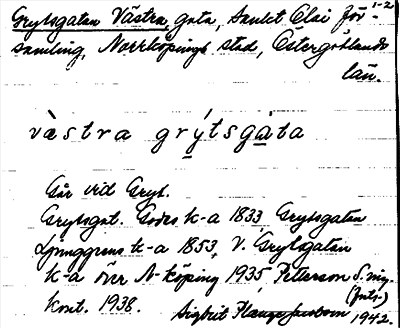 Grytsgatan Västra, gata, Sankt Olai för- 1-2
samling, Norrköpings stad, Östergötlands
län.
västra grytsgata
Går vid Gryt.
Grytsgat. Godes k-a 1833 Grytsgatan
Ljunggrens k-a 1853, V. Grytsgatan
k-a över N-köping 1935, Petterson S. ing.
kont. 1938. (Juts.)
Sigbrit 1942.